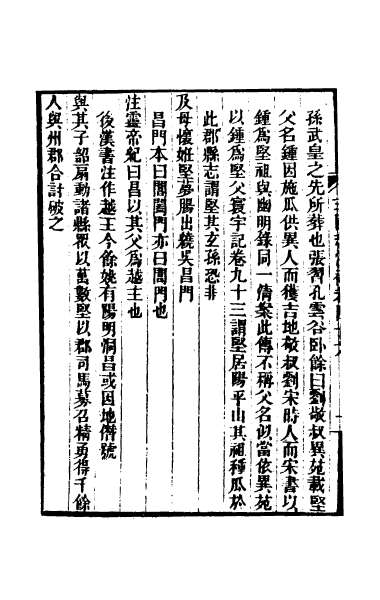 孫武皇之先所葬也張習孔雲谷臥餘曰劉敬叔異苑載堅
父名鍾因施瓜供異人而獲吉地敬叔劉宋時人而宋書以
鍾爲堅祖與幽明錄同一情案此傳不稱父名似當依異苑
以鍾爲堅父寰宇記卷九十三謂堅居陽平山其祖種瓜於
此郡縣志謂堅其玄孫恐非
及母懷姙堅夢腸出繞吳昌門
昌門本曰閶閭門亦曰閶門也
注靈帝紀曰昌以其父爲越王也
後漢書注作越王今餘姚有陽明洞昌或因地僭號
與其子韶扇動諸縣衆以萬數堅以郡司馬募召精勇得千餘
人與州郡合討破之